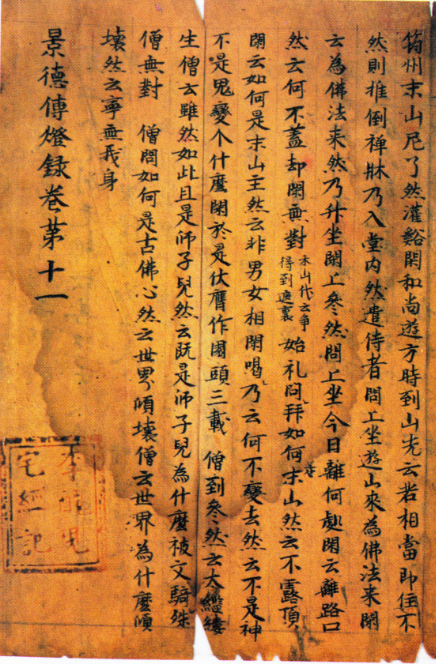 筠州末山尼了然灌谿閑和尚遊方時到山先云若相當即住不
然則推倒禪牀乃入堂內然遣侍者問上坐遊山來為佛法來閑
云為佛法來然乃升坐閑上參然問上坐今日離何處閑云離路口
然云何不蓋却閑無對末山代云爭得到遮裏始礼拜問如何是末山然云不露頂
閑云如何是末山主然云非男女相閑喝乃云何不變去然云不是神
不是鬼變个什麼閑於是伏膺作園頭三載 僧到參然云太繿縷
生僧云雖然如此且是師子兒然云既是師子兒為什麼被文殊騎
僧無對 僧問如何是古佛心然云世界傾壞僧云世界為什麼傾
壞然云寧無我身
景德傳燈録卷第十一
李
宅經記